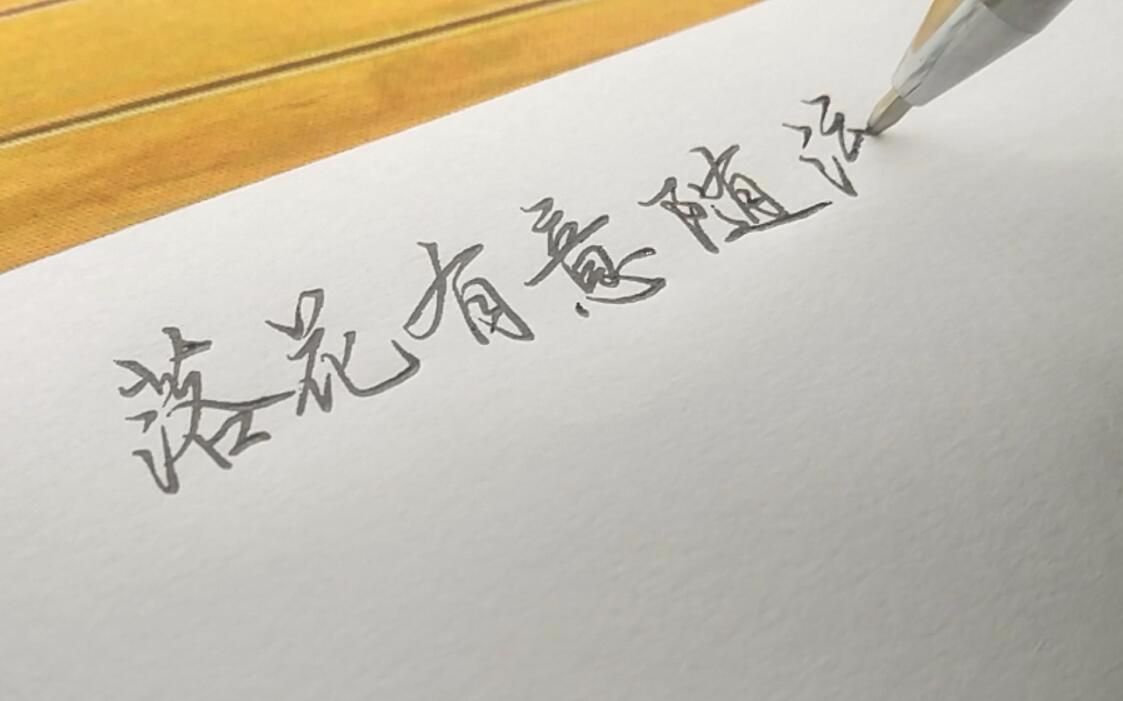 落花有意随